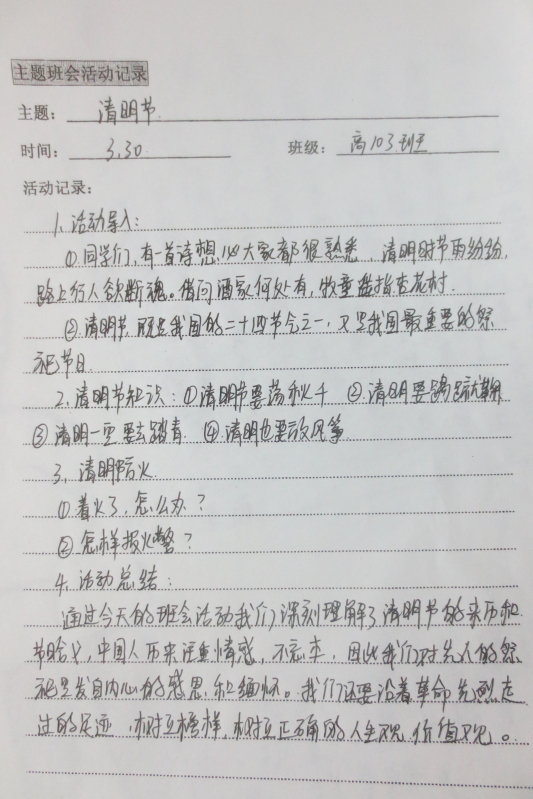 主题班会活动记录
主题: 清明节
时间: 3.30. 班级: 高103班
活动记录:
1、活动导入:
①同学们,有一首诗想必大家都很熟悉、清明时节雨纷纷,
路上行人欲断魂。借问酒家何处有,牧童遥指杏花村.
②清明节,既是我国的二十四节气之一,又是我国最重要的祭
祀节日.
2、清明节知识:①清明节要荡秋千 ②清明要踢蹴鞠
③清明一定要去踏青. ④清明也要放风筝
3、清明防火
①着火了,怎么办?
②怎样报火警?
4、活动总结:
通过今天的班会活动我们深刻理解了清明节的来历和
节含义,中国人历来注重情感,不忘本,因此我们对先人的祭
祀是发自内心的感恩和缅怀。我们还要沿着革命先烈走
过的足迹,树立榜样,树立正确的人生观价值观。